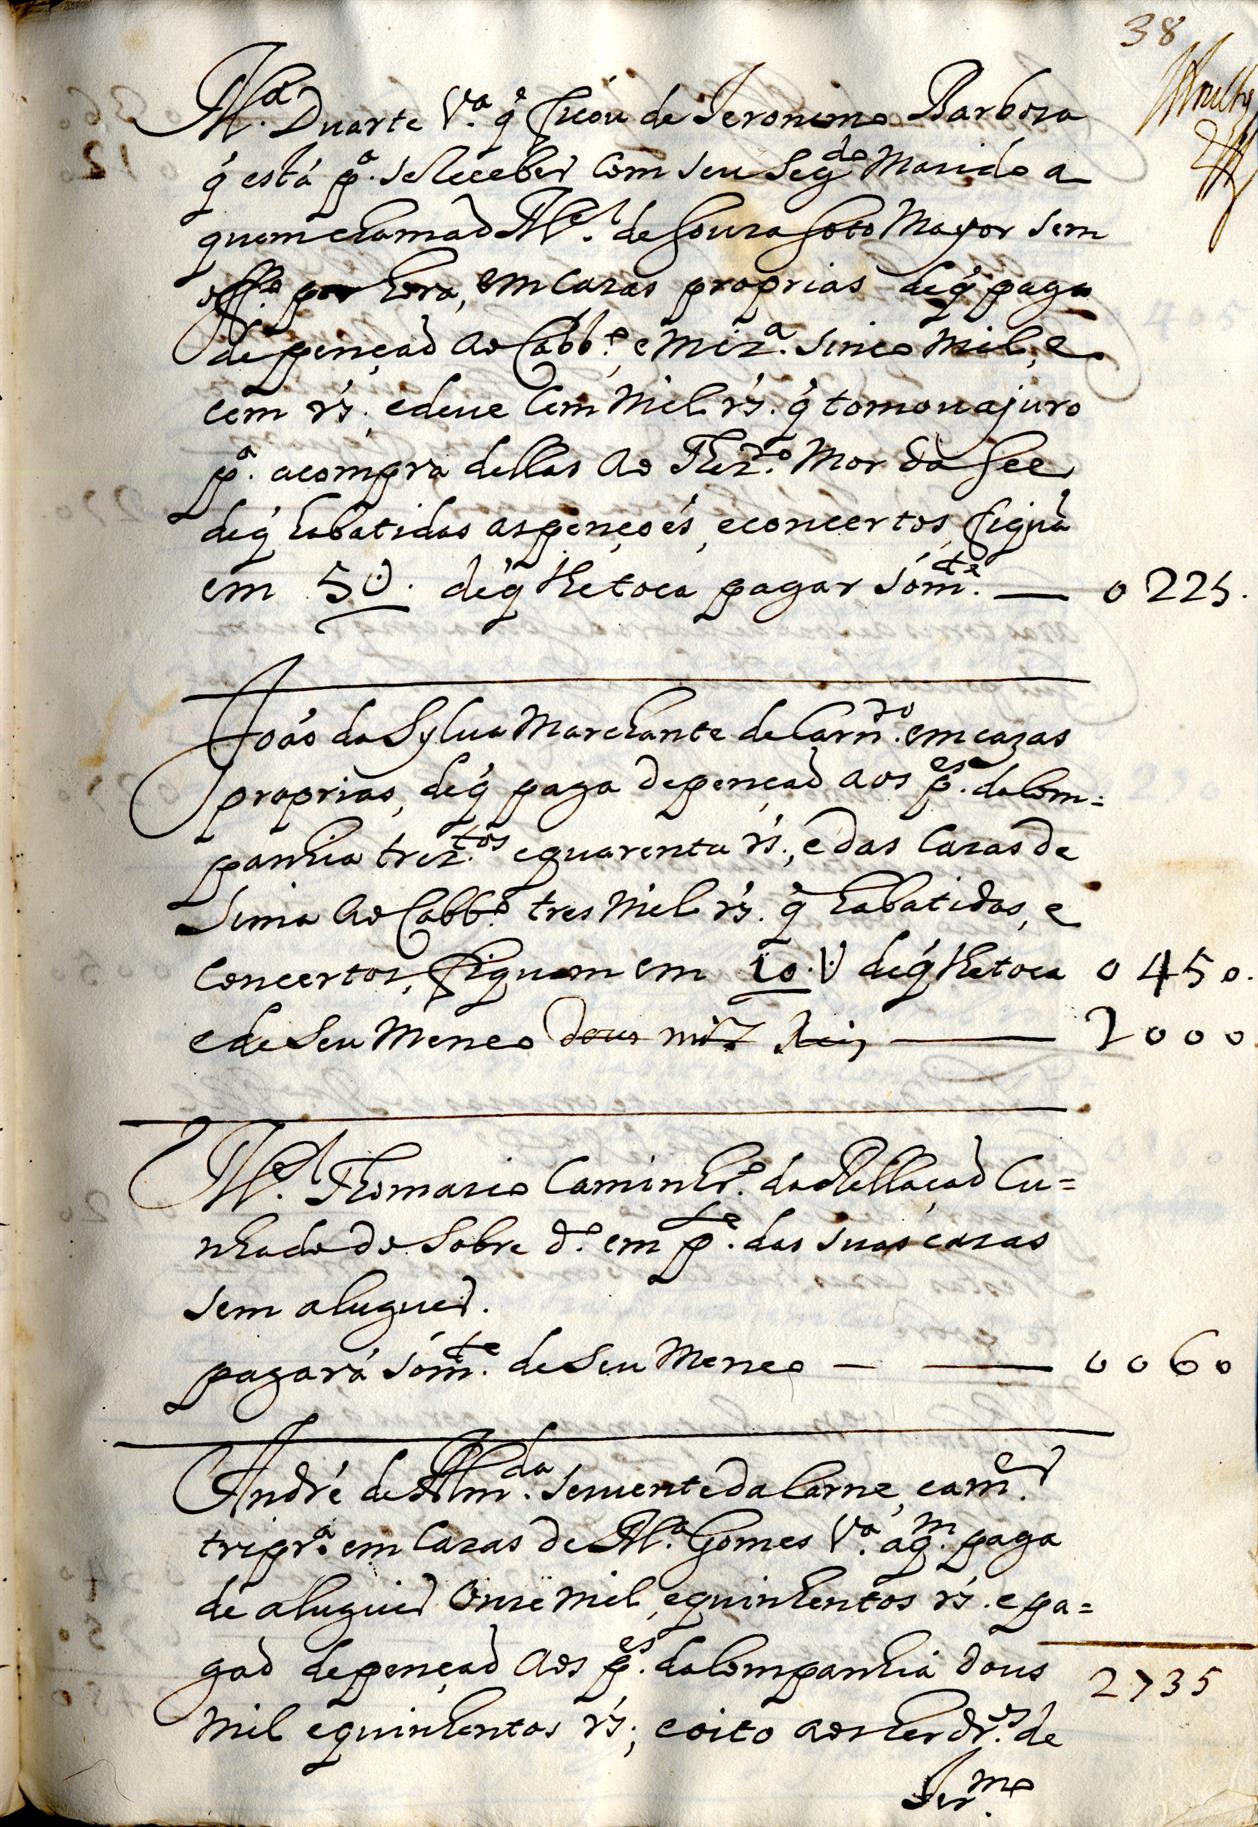 38
M.ª Duarte V.ª q̃ ficou de Jeronimo Barboza
q̃ está p.ª se Receber Com seu Seg.do Marido a
quem chamaõ M.el de Souza Soto Mayor sem
off.º por hora, em Cazas proprias de q̃ paga
de pençaõ ao Cabb.º, e Miz.ª Sinco Mil, e
cem rs̃. e deue Cem Mil rs̃. q̃ tomou a juro
p.ª a compra dellas ao Thez.ro Mor da See
de q̃ habatidas as pençoẽs, e concertos, ficaõ
em 50U. de q̃ lhe toca pagar sóm.te — 0225.
Joaõ da Sylua Marchante de Carn.ro em cazas
proprias, de q̃ paga de pençaõ aos P.es da Com=
panhia trez.tos e quarenta rs̃., e das Cazas de
Sima ao Cabb.º tres Mil rs̃. q̃ habatidas, e
Concertos, fiquam em 10.U de q̃ lhe toca 0450.
e de Seu Meneo dous mil Reis — 2000
M.el Thomazio Caminhr.º da Rellaçaõ Cu=
nhado do Sobre d.º em p.te das suas cazas
sem aluguer.
pagará sóm.te de Seu Meneo — — 0060
André de Alm.da Seruente da Carne, e a m.er
tripr.ª em Cazas de M.ª Gomes V.ª a q.m paga
de aluguer Onze Mil, e quinhentos rs̃. e pa=
gaõ de pençaõ aos P.es da Companhia dous
Mil e quinhentos rs̃., e oito aos herdr.os de
2735
Jer.mo